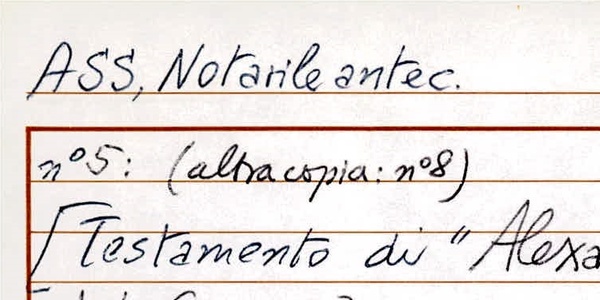 ASS, Notarile antec.
n°5: (altra copia: n°8)
Testamento di "Alexa